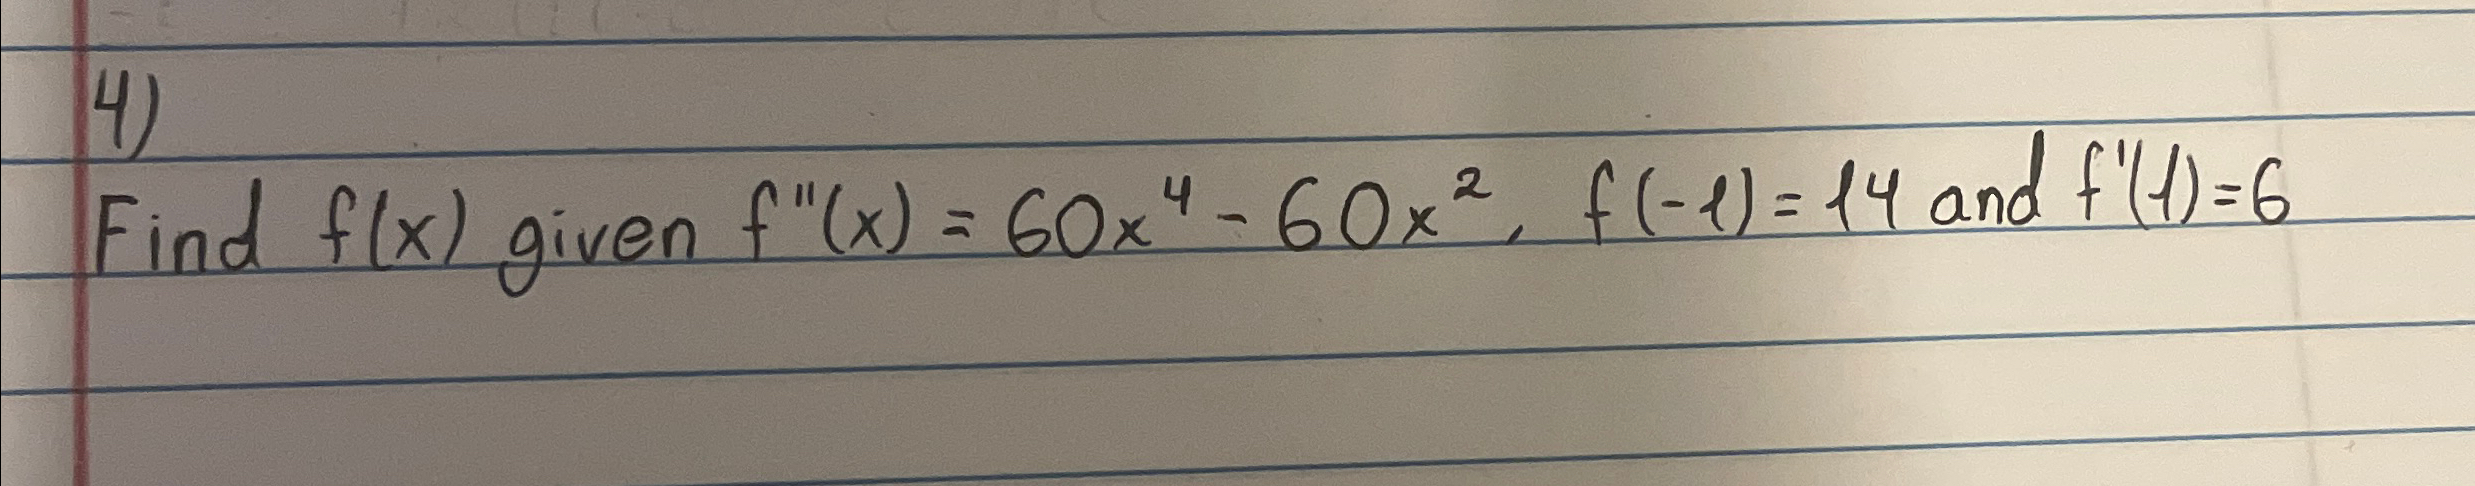 4)
Find f(x) given f"(x) = 60x⁴ - 60x², f(-1) = 14 and f'(1) = 6